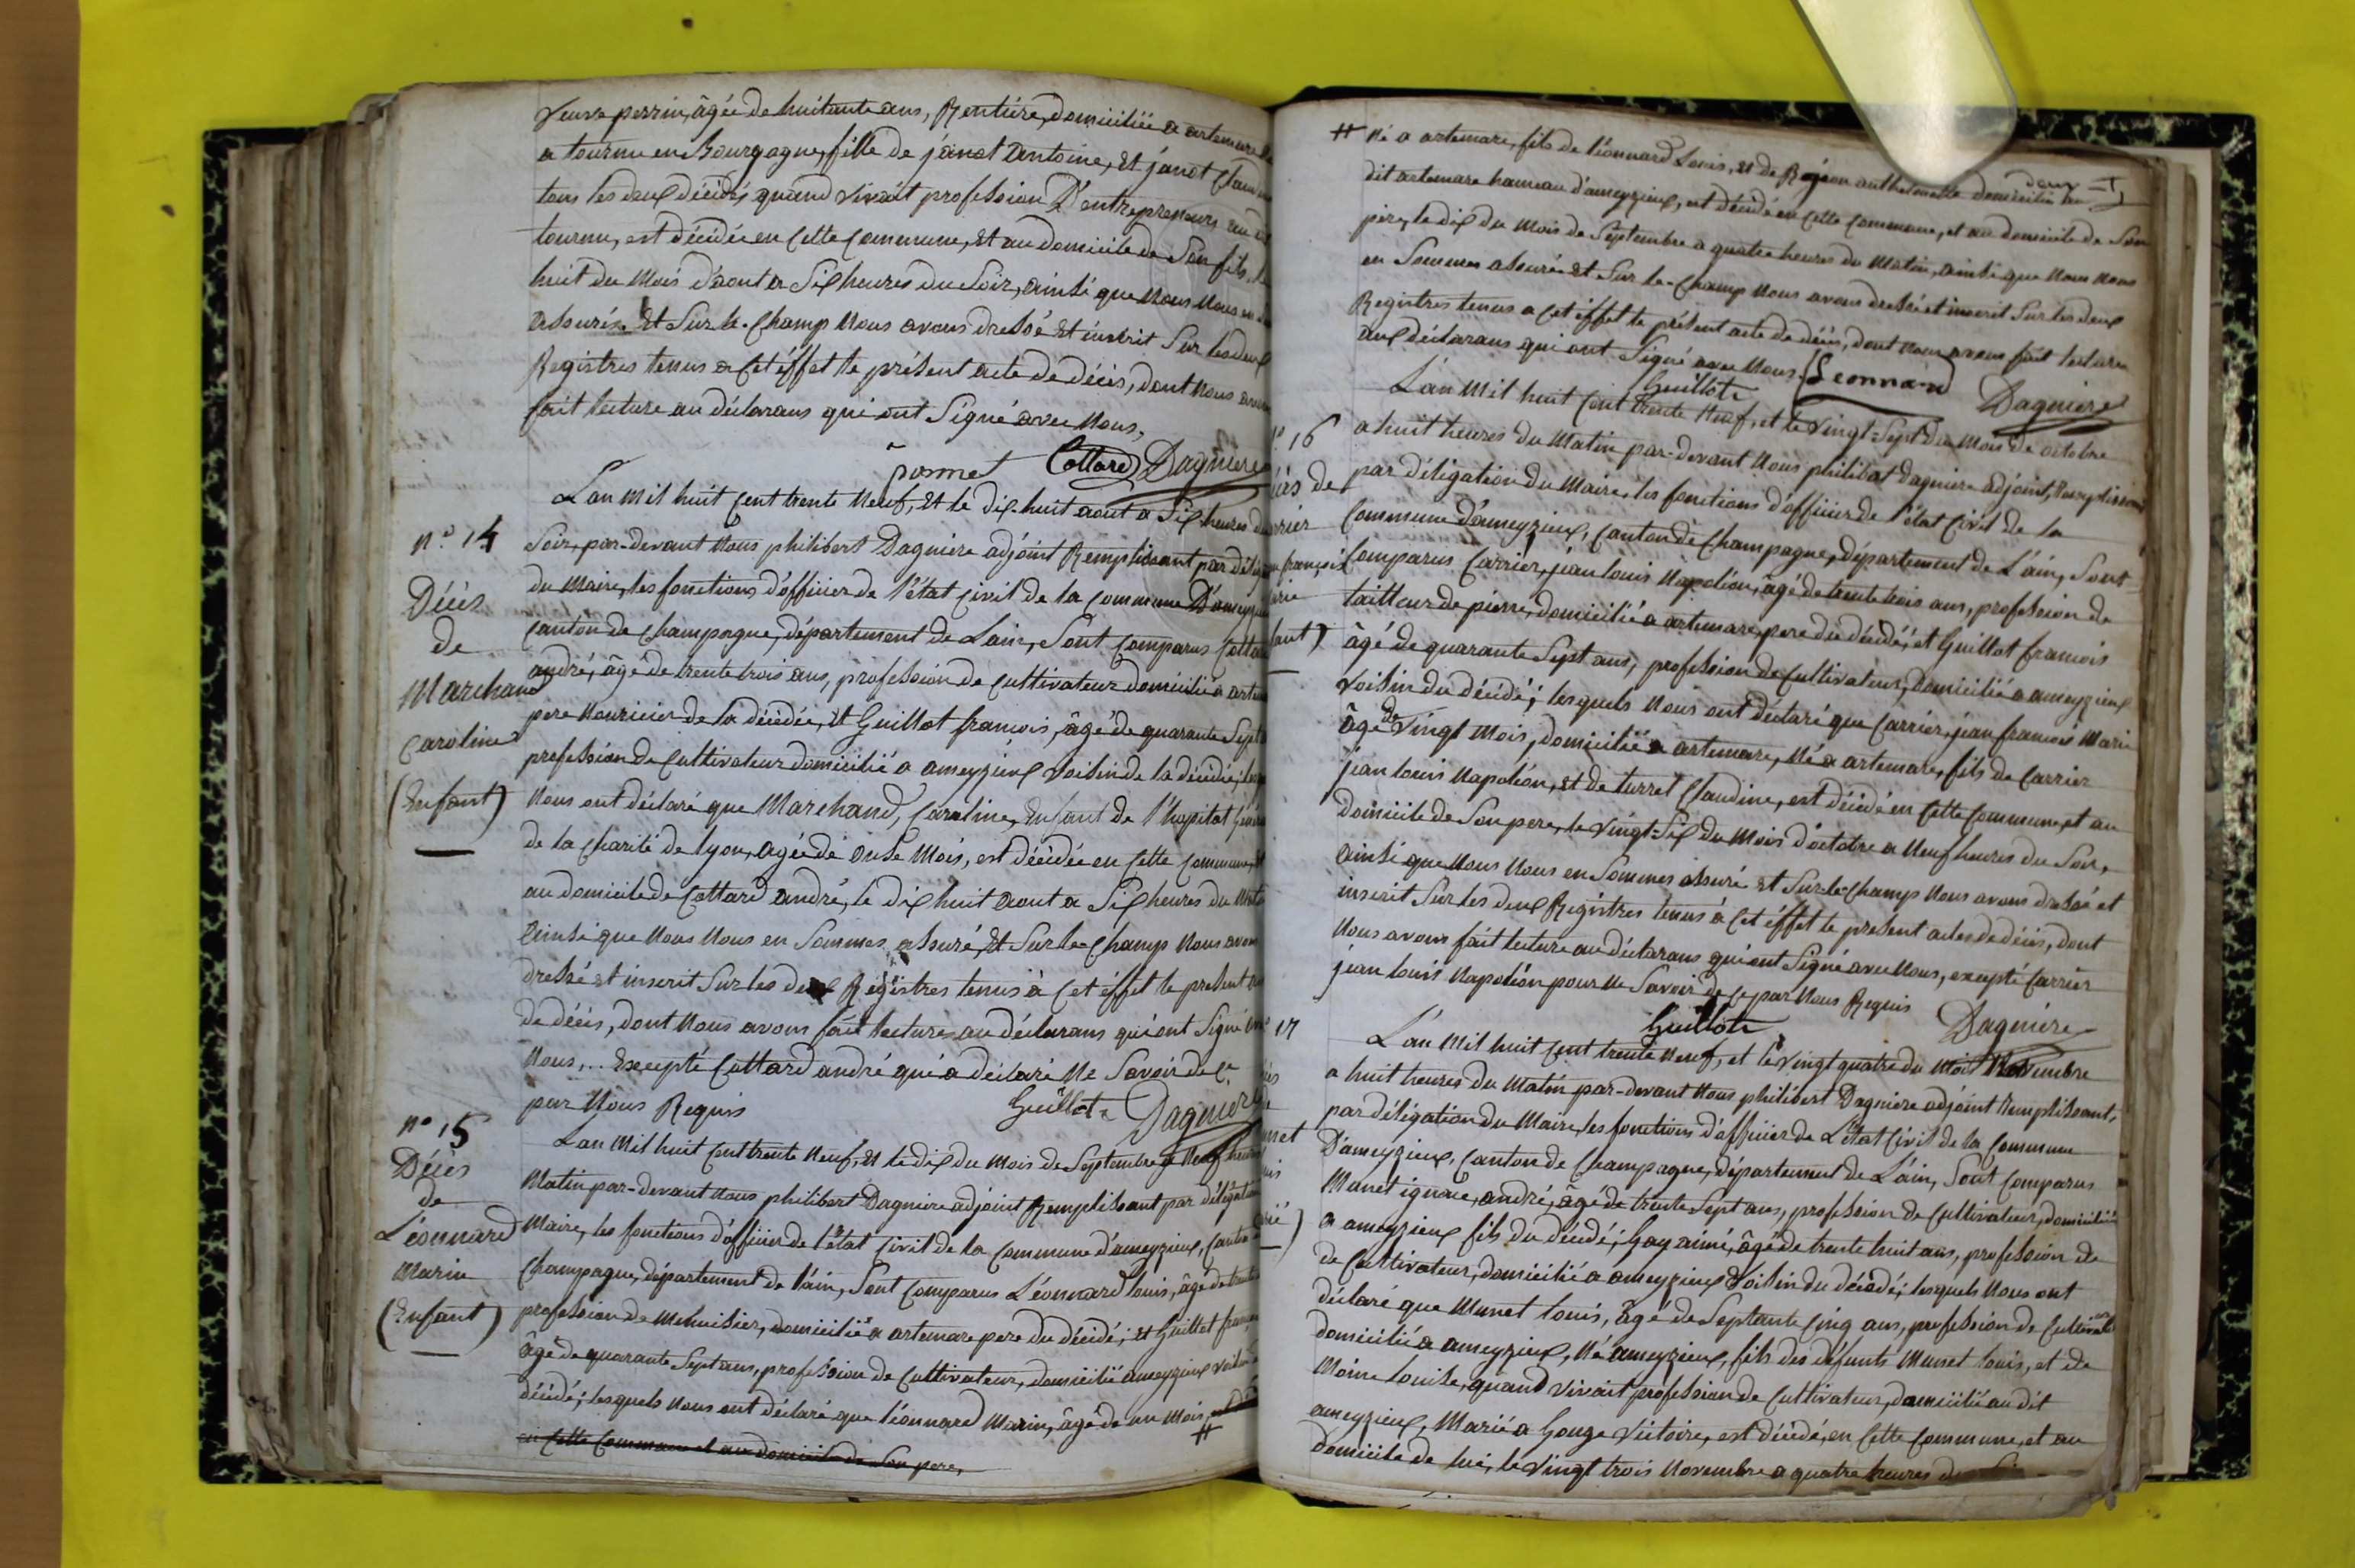 Veuve perrin, âgée de huitante ans, Rentière, domiciliée a artemare
a tournu en Bourgogne, fille de janot Antoine, et janot
tous les deux décédés quand vivait profession D'entrepreneurs
tournu, est décédée en cette commune, et au domicile de Son fils,
huit du Mois d'aout a Six heures du Soir, ainsi que Nous Nous en
assurés. Et Sur le-Champ Nous avons dressé et inscrit Sur les deux
Registres tenus a cet éffet le présent acte de décès, dont Nous
fait lecture au déclarans qui ont Signé avec Nous,
Cottard Dagniere
L'an Mil huit cent trente Neuf, et le dix-huit aout a Six heures du
n.o 14
Décès
de
Marchand
Caroline
(Enfant)
Soir, par-devant Nous philibert Dagniere adjoint Remplissant par
du Maire, les fonctions d'officier de l'état civil de la commune
canton de Champagne, département de Lain, Sont Comparus
andré, âgé de trente trois ans, profession de Cultivateur domicilié a
pere Nouricier de la décédée, et Guillot francois, âgé de quarante Sept
profession de Cultivateur domicilié a ameyzieux Voisin de la décédée;
Nous ont déclaré que Marchand, Caroline, Enfant de l'hopital
de la Charité de lyon, agée de onse Mois, est décédée en cette commune,
au domicile de Cottard andré, le dix huit aout a Six heures du
Ainsi que Nous Nous en Sommes assuré, Et Sur le-Champ Nous avons
dressé et inscrit Sur les deux Registres tenus à cet éffet le présent
de décès, dont Nous avons fait lecture au déclarans qui ont Signé
Nous,... Excepté Cottard andré qui a déclaré Ne Savoir de ce
par Nous Requis
Guillot Dagniere
n.o 15
Décès
de
Léonnard
Marin
(Enfant)
L'an Mil huit cent trente Neuf, et le dix du Mois de Septembre a Neuf heures
Matin par-devant Nous philibert Dagniere adjoint Remplissant par
Maire, les fonctions d'officier de l'état civil de la Commune d'ameyzieux,
Champagne, département de l'ain, Sont Comparus Léonnard louis, âgé de
profession de Menuisier, domicilié a artemare pere du décédé; et Guillot
âgé de quarante Sept ans, profession de Cultivateur, domicilié ameyzieux
décédé; lesquels Nous ont déclaré que léonnard Marin, âgé de un Mois,
en cette Commune et au domicile de Son pere,
#
# Né a artemare, fils de léonnard Louis, et de domiciliés au
deux
dit artemare hameau d'ameyzieux, est décédé en cette Commune, et au domicile de Son
pere, le dix du Mois de Septembre a quatre heures du Matin, ainsi que Nous Nous
en Sommes assuré. Et Sur le-Champ Nous avons dressé et inscrit Sur les deux
Registres tenus a cet éffet le présent acte de décès, dont Nous avons fait lecture
aux déclarans qui ont Signé avec Nous. Leonnard
Guillot Dagniere
L'an Mil huit cent trente Neuf, et le Vingt-Sept du Mois de octobre
16
a huit heures du Matin par-devant Nous philibert Dagniere adjoint, Remplissant
par déligation du Maire, les fonctions d'officier de l'état Civil de la
Commune D'ameyzieux, Canton de Champagne, département de L'ain, Sont
Comparus Carrier, jean louis Napoléon, âgé de trente trois ans, profession de
tailleur de pierre, domicilié a artemare, pere du décédé; et Guillot francois
âgé de quarante Sept ans, profession de Cultivateur, domicilié a ameyzieux
Voisin du décédé; lesquels Nous ont déclaré que Carrier, jean francois Marie
âgé de Vingt Mois, domicilié a artemare, Né a artemare, fils de Carrier
jean louis Napoléon, et de turret Claudine, est décédé en cette Commune, et au
domicile de Son pere, le Vingt-Six du Mois d'octobre a Neuf heures du Soir,
Ainsi que Nous Nous en Sommes assuré. Et Sur le-Champ Nous avons dressé et
inscrit Sur les deux Registres tenus à cet éffet le présent actes de décès, dont
Nous avons fait lecture au déclarans qui ont Signé avec Nous, excepté Carrier
jean louis Napoléon pour Ne Savoir de ce par Nous Requis
Guillot Dagniere
17
L'an Mil huit cent trente Neuf, et le Vingt quatre du Mois Novembre
a huit heures du Matin par-devant Nous philibert Dagniere adjoint Remplissant,
par déligation du Maire, les fonctions d'officier de L'état Civil de la Commune
D'ameyzieux, Canton de Champagne, département de L'ain, Sont Comparus
Munet ignace, andré, âgé de trente Sept ans, profession de Cultivateur, domicilié
a ameyzieux fils du décédé; Gay aimé, âgé de trente huit ans, profession de
de Cultivateur, domicilié a ameyzieux Voisin du décédé; lesquels Nous ont
déclaré que Munet louis, âgé de Septante Cinq ans, profession de Cultivateur
domicilié a ameyzieux, Né ameyzieux, fils des défunts Munet louis, et de
Moine louise, quand vivait profession de Cultivateur, domicilié au dit
ameyzieux, Marié a Gouge Victoire, est décédé, en cette Commune, et au
domicile de lui, le Vingt trois Novembre a quatre heures